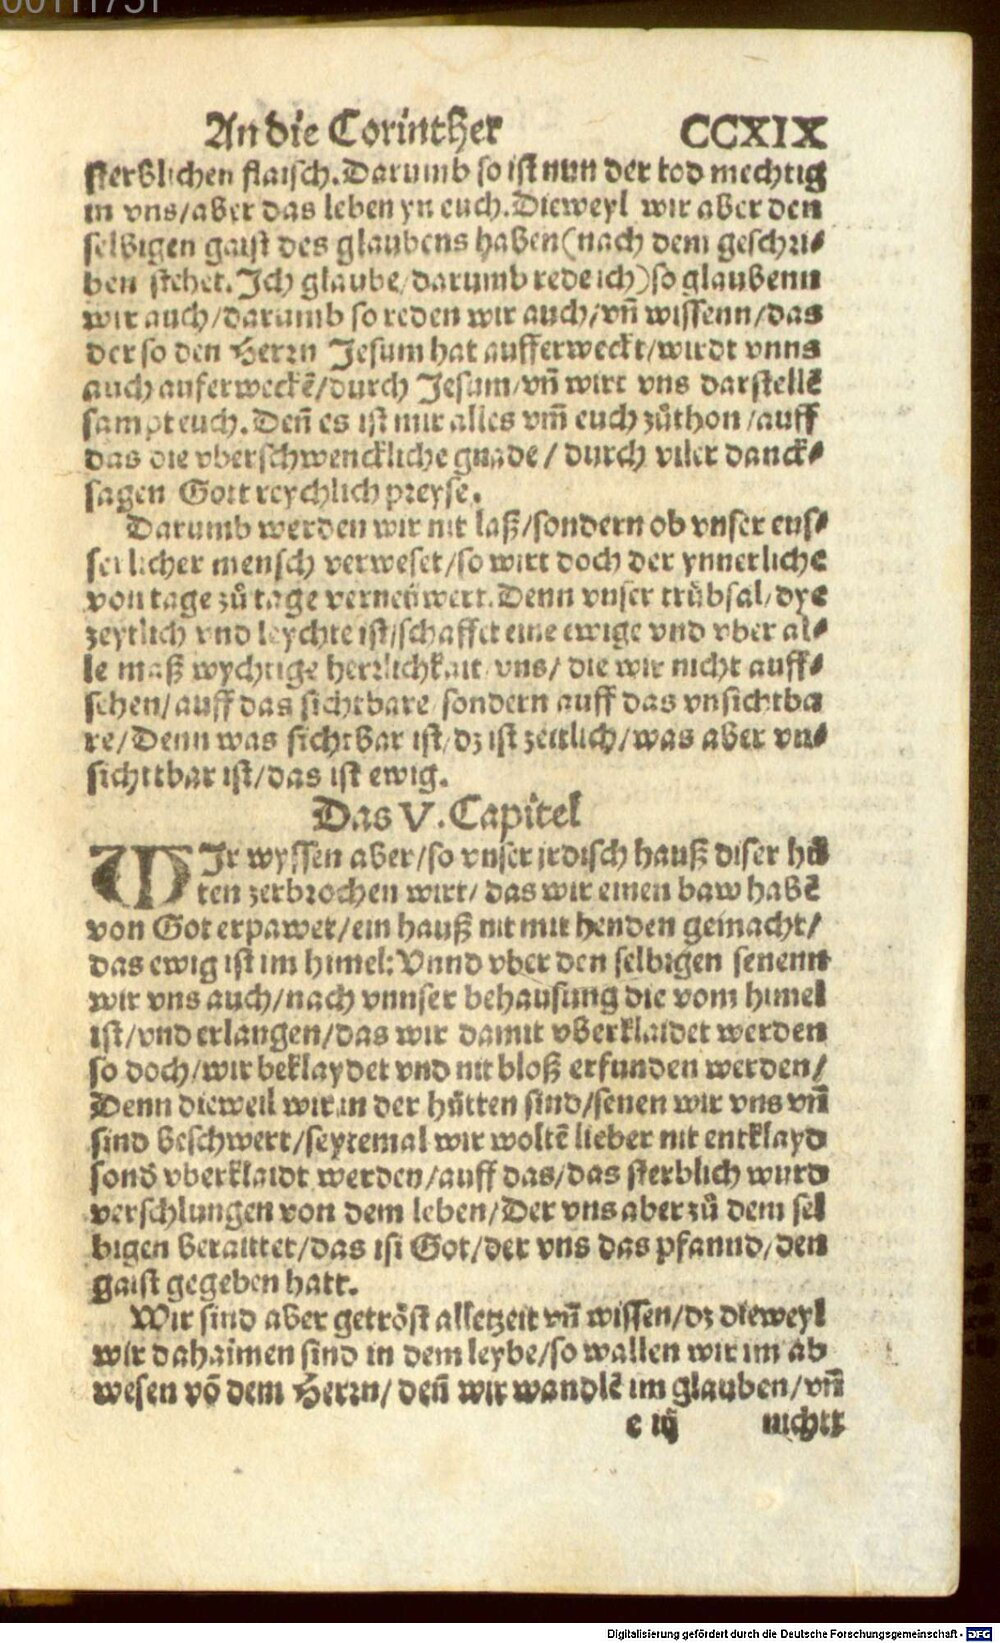 00111731
An die Corinther CCXIX
sterblichen flaisch. Darumb so ist nun der tod mechtig
in vns/aber das leben yn euch. Dieweyl wir aber den
selbigen gaist des glaubens haben (nach dem geschri⸗
ben stehet. Ich glaube/darumb rede ich) so glaubenn
wir auch/darumb so reden wir auch/vñ wissenn/das
der so den Herrn Jesum hat aufferweckt/wirdt vnns
auch auferweckē/durch Jesum/vñ wirt vns darstellē
sampt euch. Deñ es ist mir alles vm̃ euch zůthon/auff
das die vberschwenckliche gnade/ durch viler danck⸗
sagen Gott reychlich preyse.
Darumb werden wir nit laß/sondern ob vnser eus⸗
serlicher mensch verweset/so wirt doch der ynnerliche
von tage zů tage verneüwert. Denn vnser trübsal/dye
zeytlich vnd leychte ist/schaffet eine ewige vnd vber al⸗
le maß wychtige herrlichkait vns/ die wir nicht auff⸗
sehen/auff das sichtbare/sondern auff das vnsichtba
re/Denn was sichtbar ist/dz ist zeitlich/was aber vn⸗
sichttbar ist/das ist ewig.
Das V. Capitel
WIr wyssen aber/so vnser irdisch hauß diser hü
ten zerbrochen wirt/ das wir einen baw habē
von Got erpawet/ein hauß nit mit henden gemacht/
das ewig ist im himel: Vnnd vber den selbigen senenn
wir vns auch/nach vnnser behausung die vom himel
ist/vnd erlangen/das wir damit vberklaidet werden
so doch/wir beklaydet vnd nit bloß erfunden werden/
Denn dieweil wir in der hütten sind/senen wir vns vñ
sind beschwert/seytemal wir woltē lieber nit entklayd
sond̄ vberklaidt werden/auff das/das sterblich wurd
verschlungen von dem leben/Der vns aber zů dem sel
bigen beraittet/das ist Got/der vns das pfannd/den
gaist gegeben hatt.
Wir sind aber getröst alletzeit vñ wissen/dz dieweyl
wir dahaimen sind in dem leybe/so wallen wir im ab
wesen vō dem Herrn/ deñ wir wandlē im glauben/vñ
e iij nichtt
Digitalisierung gefördert durch die Deutsche Forschungsgemeinschaft - DFG